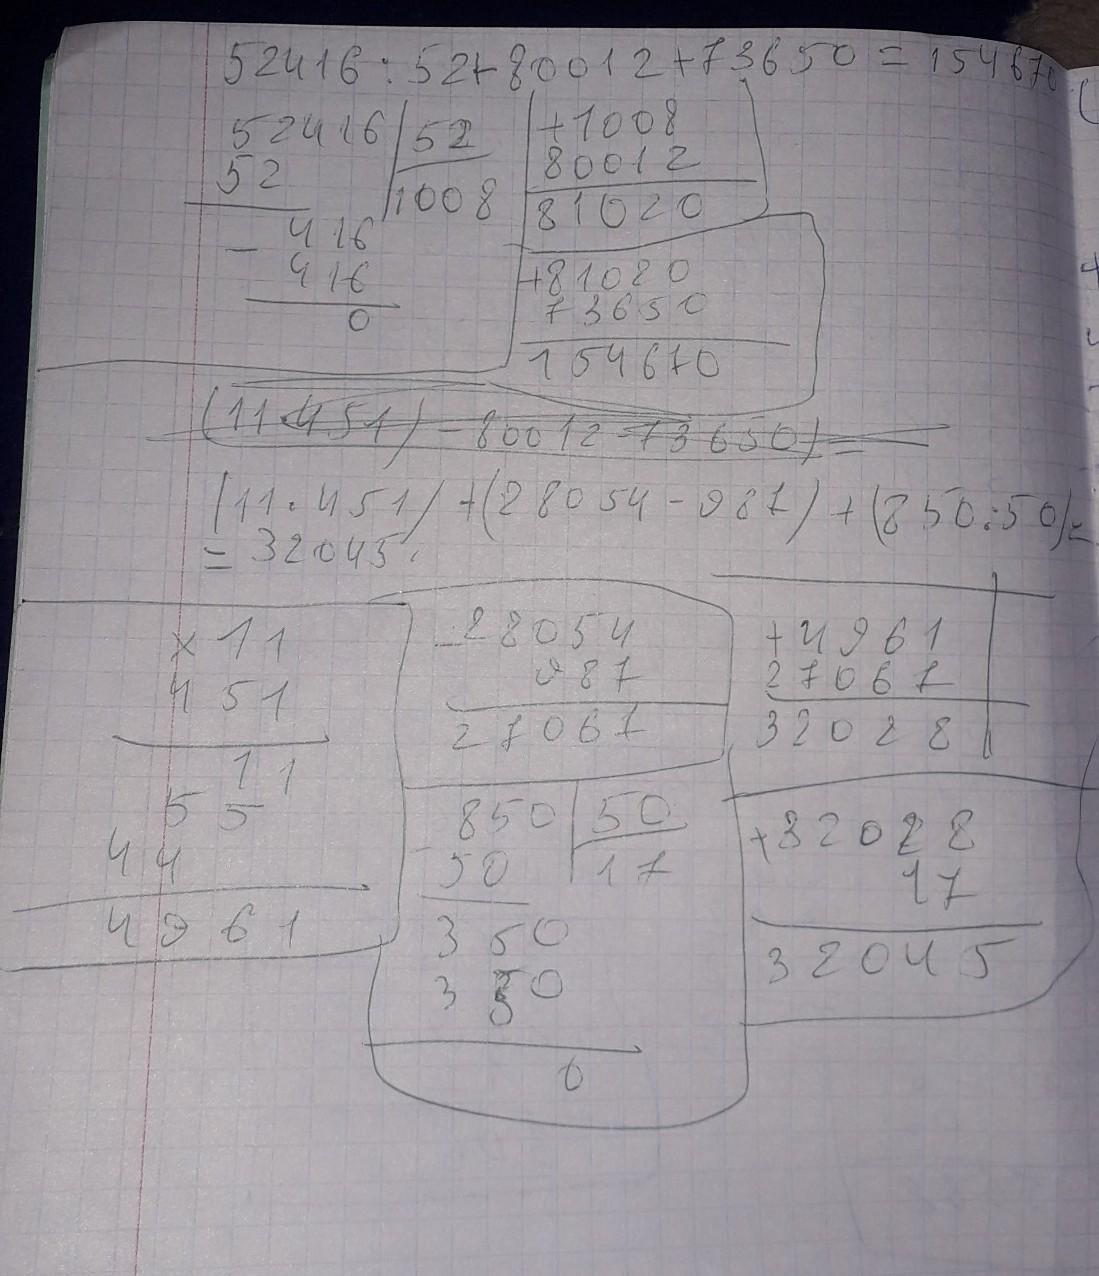 52416 : 52 + 80012 + 73650 = 154670
52416 | 52
52
1008
- 416
416
0
+ 1008
80012
81020
+ 81020
73650
154670
(11 · 451) - 80012 - 73650) =
(11 · 451) + (28054 - 987) + (850 : 50) =
= 32045.
× 11
451
11
55
44
4961
- 28054
987
27067
850 | 50
50
17
350
350
0
+ 4961
27067
32028
+ 32028
17
32045